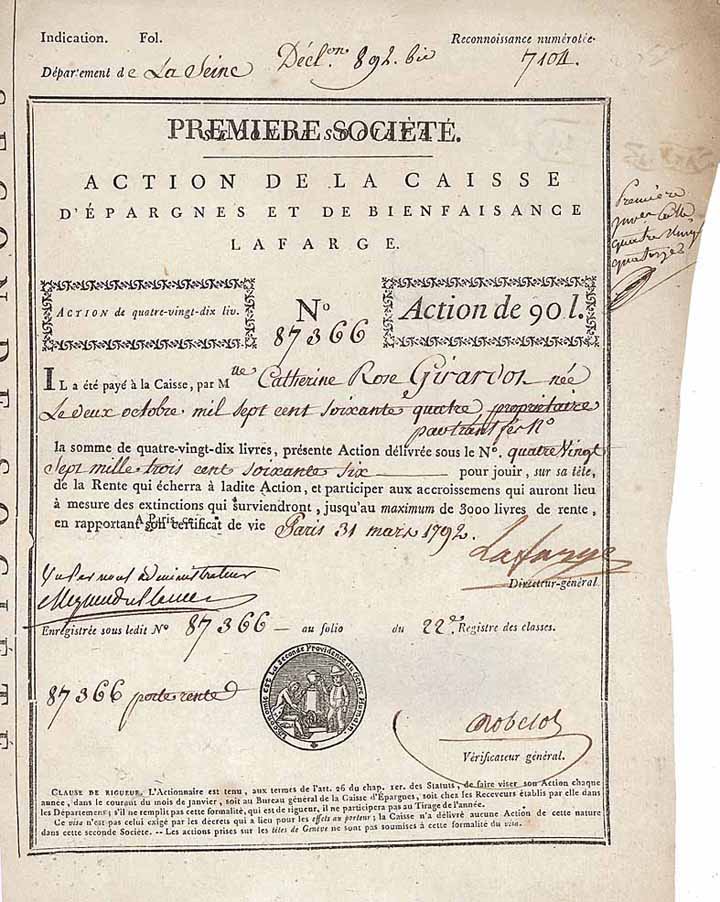 Indication. Fol. Reconnoissance numérotée.
Département de La Seine Décl.on 892. bis 7104.
PREMIERE SOCIÉTÉ.
ACTION DE LA CAISSE
D'ÉPARGNES ET DE BIENFAISANCE
LAFARGE.
Première
quatre vingt
quatorze
ACTION de quatre-vingt-dix liv. No Action de 90 l.
87366
IL a été payé à la Caisse, par Mlle Catherine Rose Girardot née
Le deux octobre mil sept cent soixante quatre propriétaire
par transfert No
la somme de quatre-vingt-dix livres, présente Action délivrée sous le No. quatre Vingt
Sept mille trois cent soixante six pour jouir, sur sa tête,
de la Rente qui écherra à ladite Action, et participer aux accroissemens qui auront lieu
à mesure des extinctions qui surviendront, jusqu'au maximum de 3000 livres de rente,
en rapportant son certificat de vie Paris 31 mars 1792.
A Paris, ce
Lafarge
Directeur-général.
Vu par nous administrateur
Enregistrée sous ledit No 87366 au folio du 22e. Registre des classes.
87366 porte rente
L'économie est La Seconde Providence du Genre Humain.
Vérificateur général.
CLAUSE DE RIGUEUR. L'Actionnaire est tenu, aux termes de l'art. 26 du chap. 1er. des Statuts, de faire viser son Action chaque
année, dans le courant du mois de janvier, soit au Bureau général de la Caisse d'Épargnes, soit chez les Receveurs établis par elle dans
les Départemens; s'il ne remplit pas cette formalité, qui est de rigueur, il ne participera pas au Tirage de l'année.
Ce visa n'est pas celui exigé par les décrets qui a lieu pour les effets au porteur; la Caisse n'a délivré aucune Action de cette nature
dans cette seconde Société. -- Les actions prises sur les têtes de Genève ne sont pas soumises à cette formalité du visa.
SECONDE SOCIÉTÉ